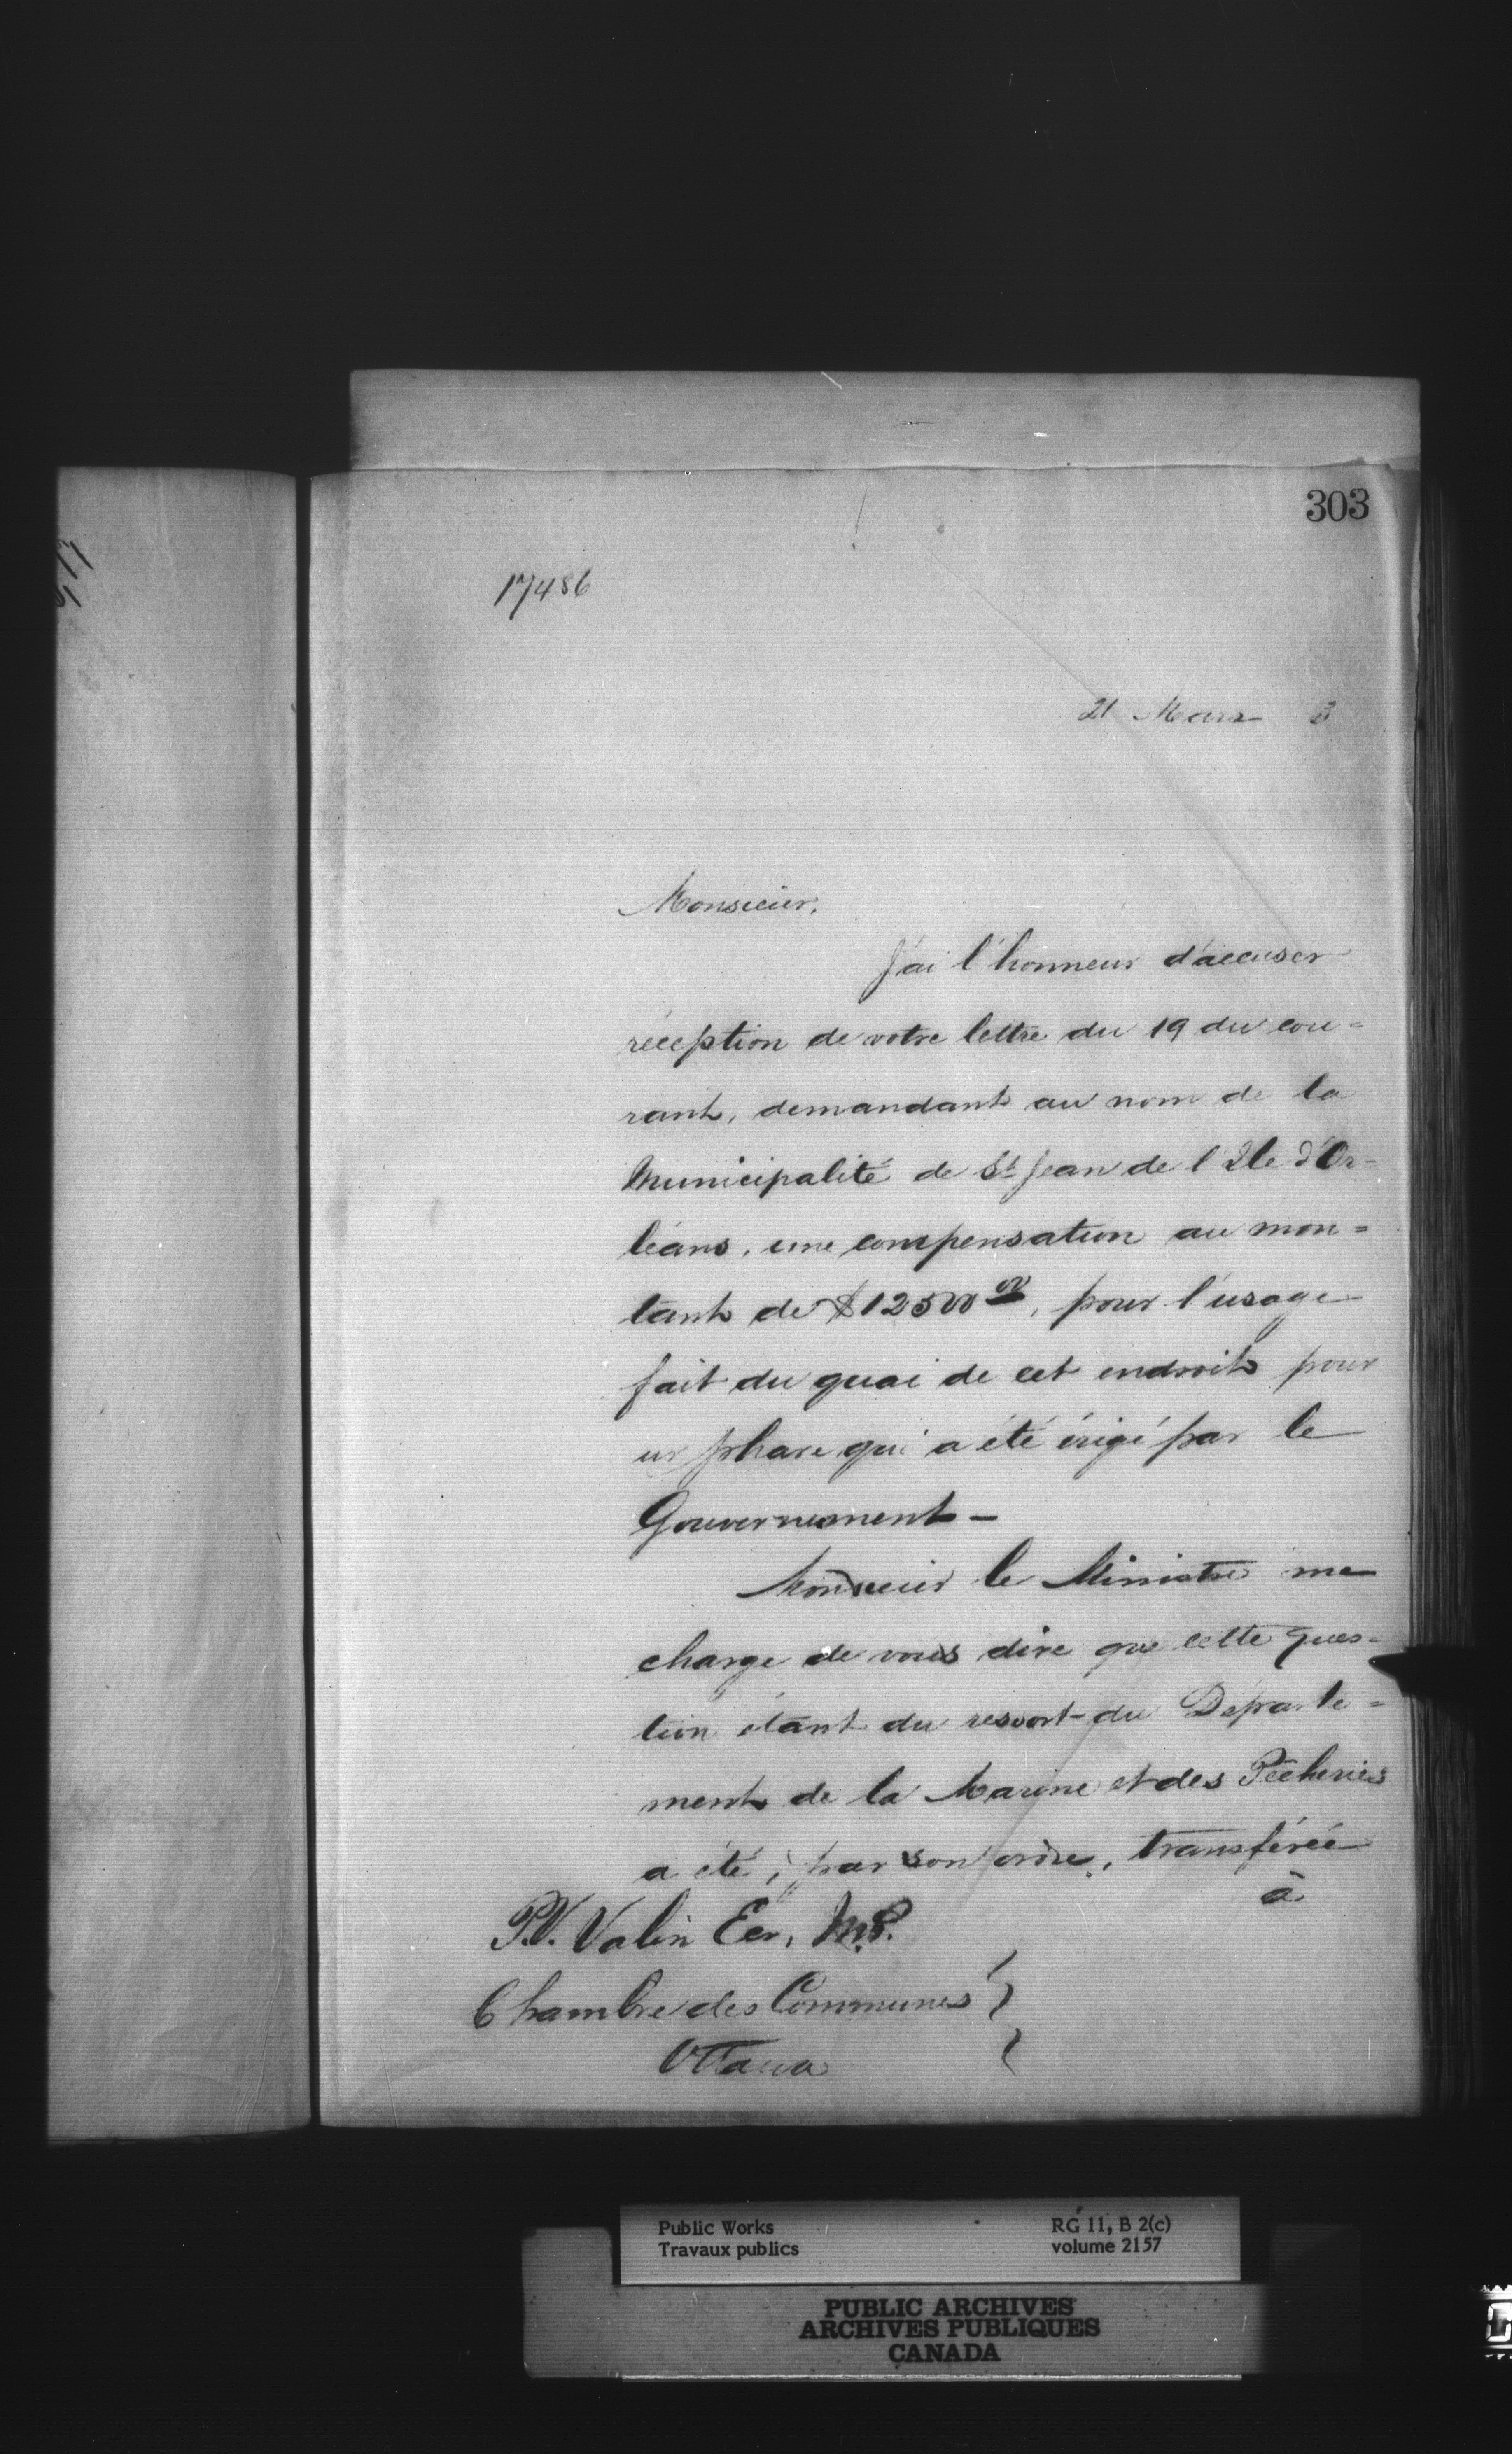 303
17486
21 Mars 3
Monsieur,
J'ai l'honneur d'accuser
réception de votre lettre du 19 du cou=
rant, demandant au nom de la
Municipalité de St Jean de l'Ile d'Or=
léans, une compensation au mon=
tant de $12500 00, pour l'usage
fait du quai de cet endroit pour
un phare qui a été érigé par le
Gouvernement -
Monsieur le Ministre me
charge de vous dire que cette ques-
tion étant du ressort du Départe=
ment de la Marine et des Pêcheries
a été, par son ordre, transférée
à
P.V. Valin Ecr, M.P.
Chambre des Communes
Ottawa
Public Works
Travaux publics
RG 11, B 2(c)
volume 2157
PUBLIC ARCHIVES
ARCHIVES PUBLIQUES
CANADA